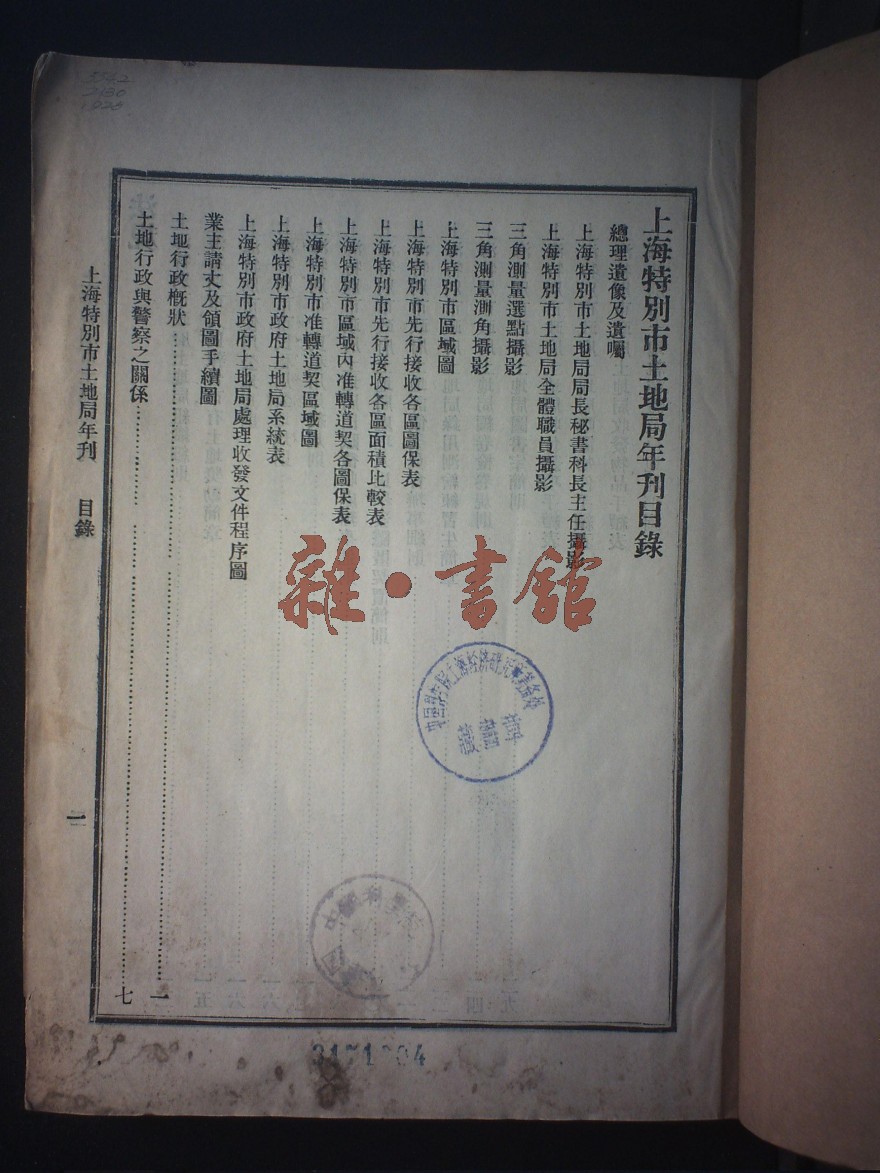 上海特別市土地局年刊目錄
總理遺像及遺囑
上海特別市土地局局長秘書科長主任攝影
上海特別市土地局全體職員攝影
三角測量選點攝影
三角測量測角攝影
上海特別市區域圖
上海特別市先行接收各區圖保表
上海特別市先行接收各區面積比較表
上海特別市區域內准轉道契各圖保表
上海特別市准轉道契區域圖
上海特別市政府土地局系統表
上海特別市政府土地局處理收發文件程序圖
業主請丈及領圖手續圖
土地行政概狀……一
土地行政與警察之關係……七
上海特別市土地局年刊 目錄
一
雜·書館